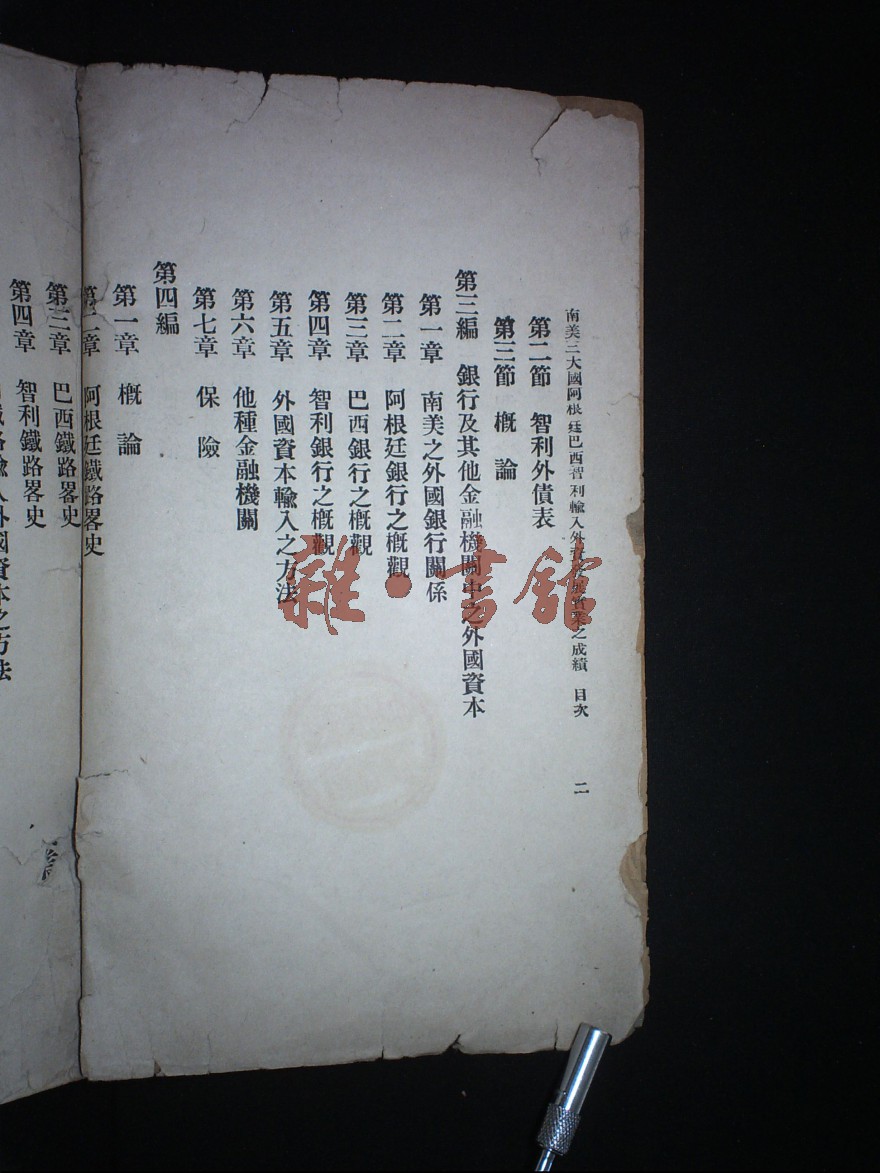 南美三大國阿根廷巴西智利輸入外資發展實業之成績 目次 二
第二節 智利外債表
第三節 概論
第三編 銀行及其他金融機關中之外國資本
第一章 南美之外國銀行關係
第二章 阿根廷銀行之概觀
第三章 巴西銀行之概觀
第四章 智利銀行之概觀
第五章 外國資本輸入之方法
第六章 他種金融機關
第七章 保險
第四編
第一章 概論
第二章 阿根廷鐵路畧史
第三章 巴西鐵路畧史
第四章 智利鐵路畧史
鐵路輸入外國資本之方法
雜·書館